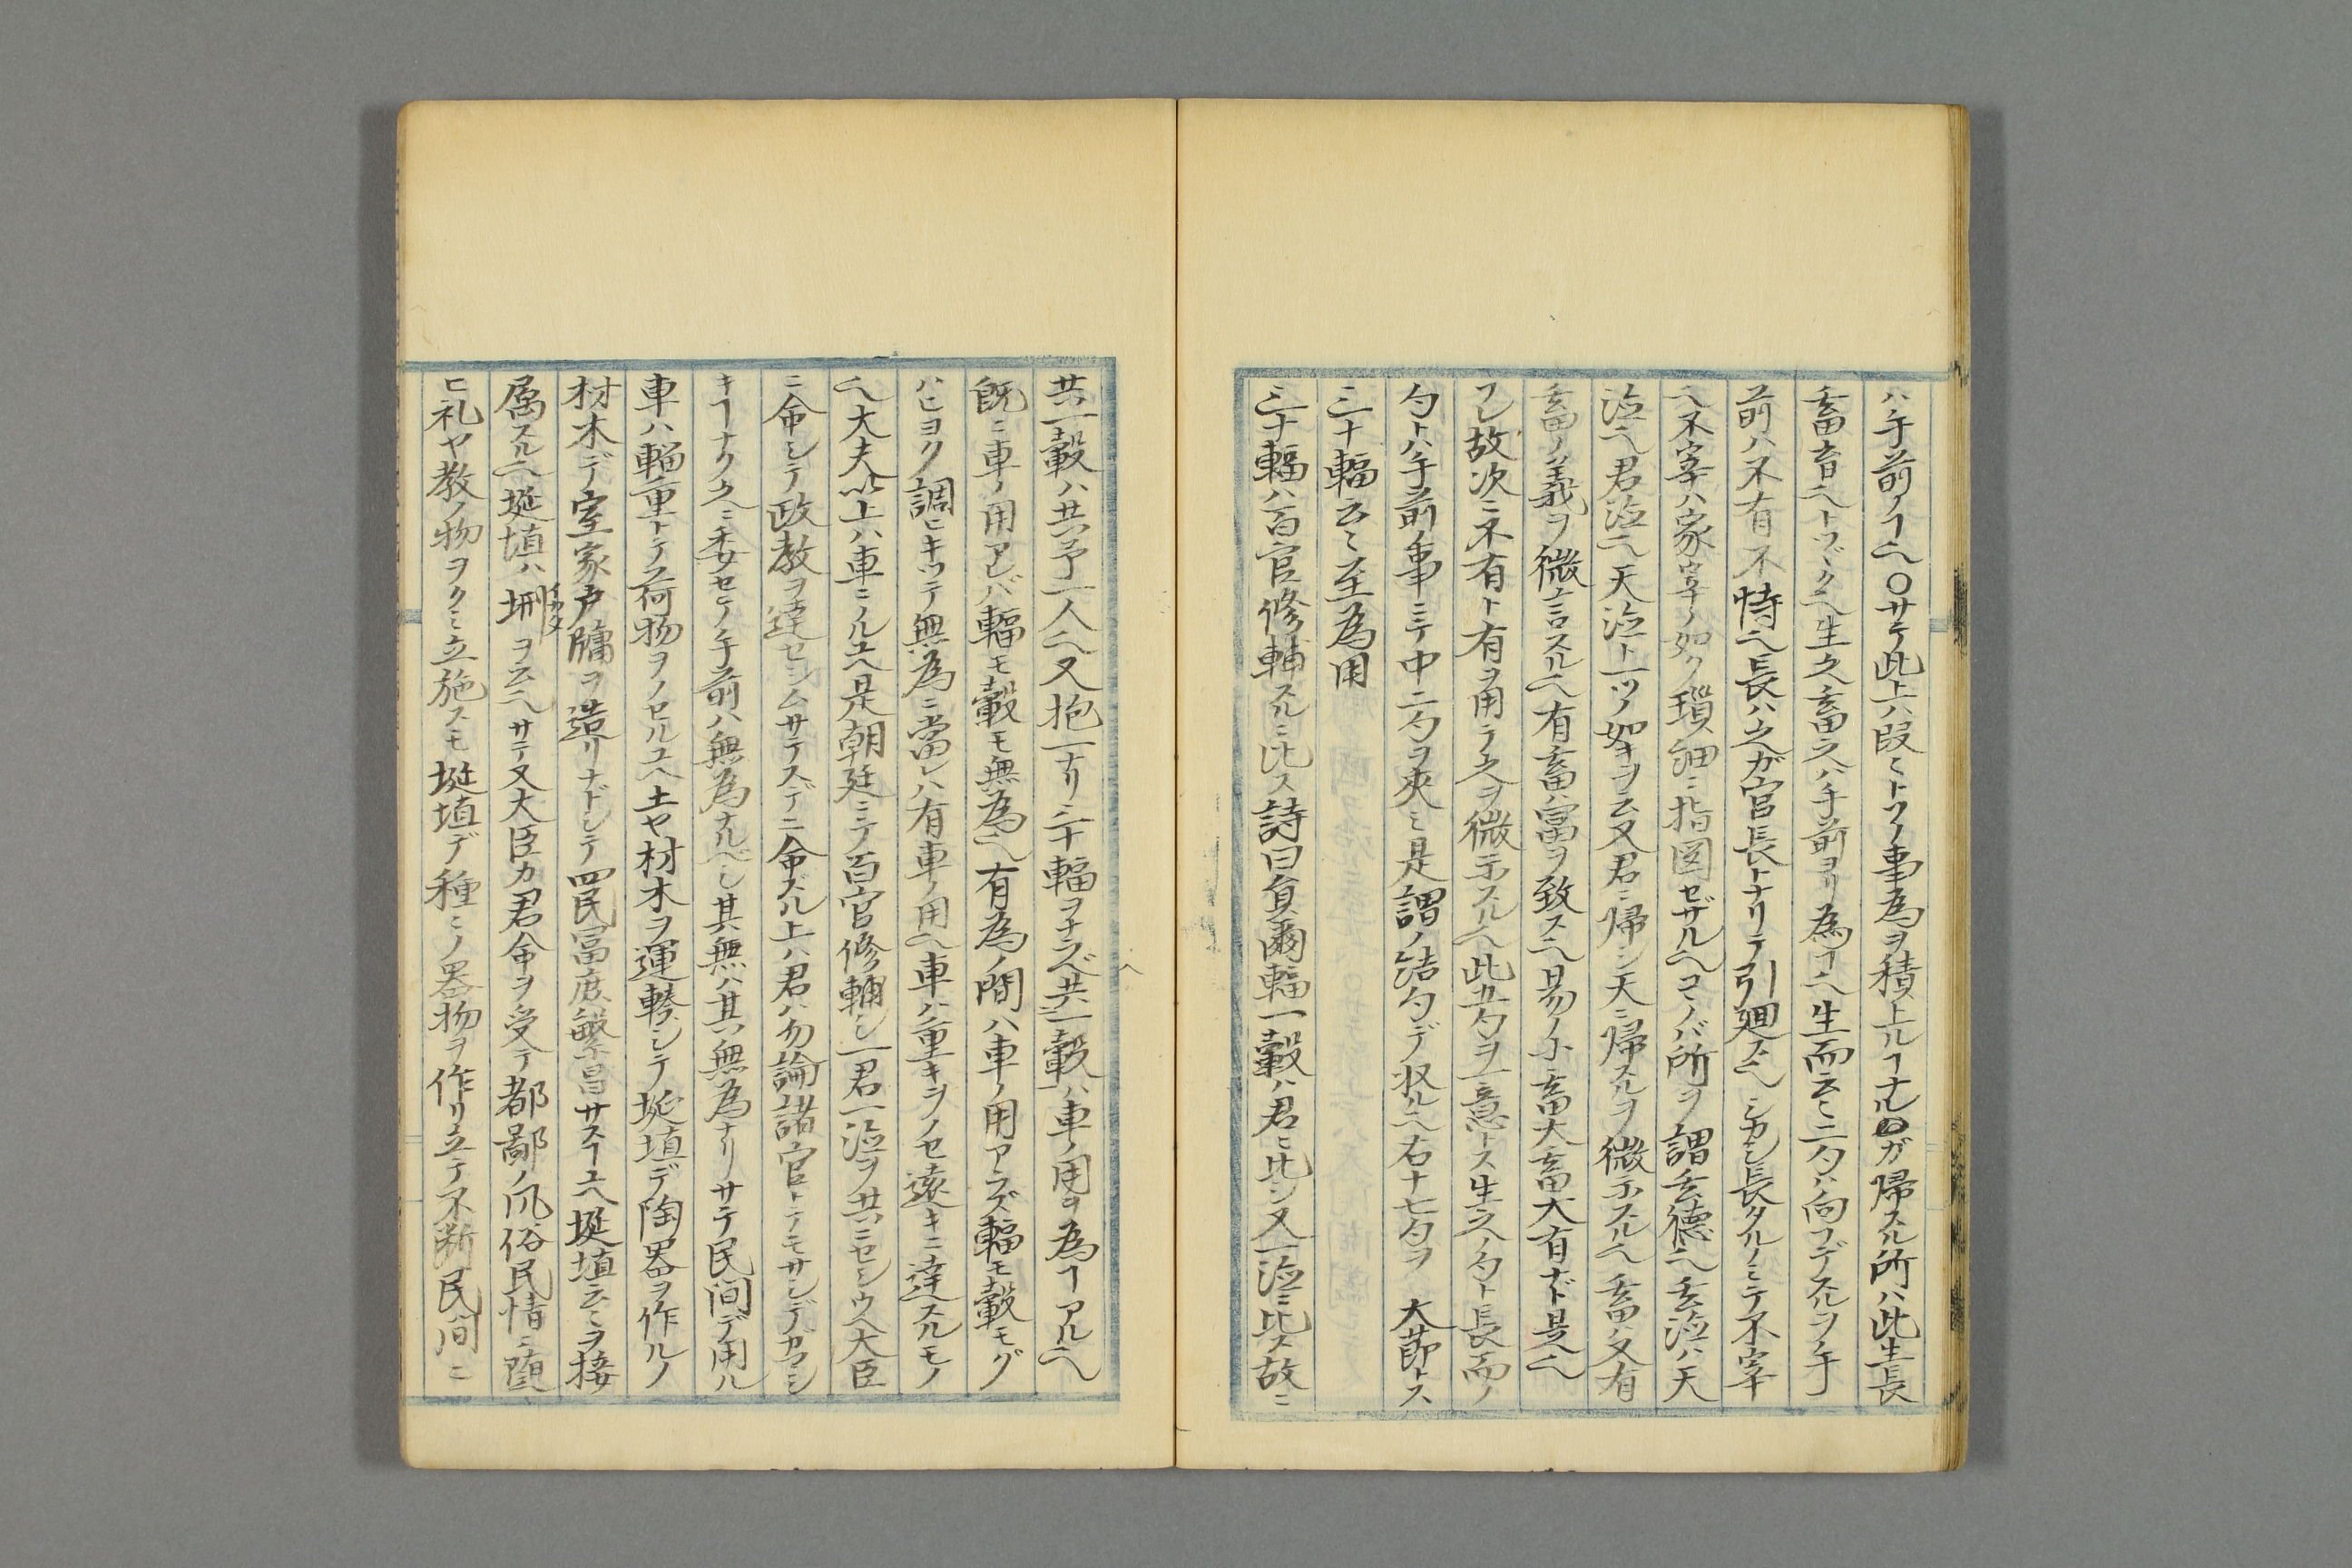 ハ手前ノヿ也〇サテ此上ハ段々トツノ事為ヲ積上ルヿナルガ帰スル所ハ此生長
畜育也トツヾク也生之畜之ハ手前ヨリ為ヿ也生而云々二句ハ向フデスルヲ手
前ハ不有不恃也長ハ之ガ官長トナリテ引廻ス也シカシ長タルノミテ不宰
也不宰ハ家宰ノ如ク瑣細ニ指図セザル也コノバ所ヲ謂玄徳也玄泣ハ天
泣也君泣也天泣ト一ツノ如キヲ云又君ニ帰シ天ニ帰スルヲ微示スル也玄畜ハ又有
玄畜ノ義ヲ微言スル也有玄畜ハ富ヲ致ス也易ノ小畜大畜大有ナド是也
フレ故次ニ不有ト有ヲ用テ之ヲ微示スル也此五句ヲ一意トス生之ノ句ト長而ノ
句トハ手前ノ事ニテ中二句ヲ夾ミ是謂ノ結句デ収ル也右十七句ヲ 大節トス
三十輻云々至為用
三十輻ハ百官修輔スルニ比ス詩曰員爾輻一轂ハ君ニ比シ又一泣ニ比ス故ニ
共一轂ハ共予一人也又抱一ナリ三十輻ヲナラベ共一轂ハ車ノ用ヲ為ヿアル也
既ニ車ノ用アレバ輻モ轂モ無為也有為ノ間ハ車ノ用アラズ輻モ轂モグ
ハヒヨク調ヒキツテ無為ニ當レハ有車ノ用也車ハ重キヲノセ遠キニ達スルモノ
也大夫以上ハ車ニノルユヘ是朝廷ニテ百官修輔シ一君一泣ヲ共ニセシウヘ大臣
ニ命シテ政教ヲ達センムサテスデニ命ズル上ハ君ハ勿論諸官トテモサシデガマシ
キヿナク之ニ委セテ手前ハ無為ナルベシ其無ハ其無為ナリサテ民間デ用ル
車ハ輜重トテ荷物ヲノセルユヘ土ヤ材木ヲ運轉シテ埏埴デ陶器ヲ作ルノ
材木デ室家戸牖ヲ造リナドシテ四民冨庶繁昌サスヿユヘ埏埴云々ヲ接
属スル也埏埴ハ堋ヲ云也サテ又大臣カ君命ヲ受テ都鄙ノ風俗民情ニ随
ヒ礼ヤ教ノ物ヲクミ立施スモ埏埴デ種々ノ器物ヲ作リ立テ不断民間ニ